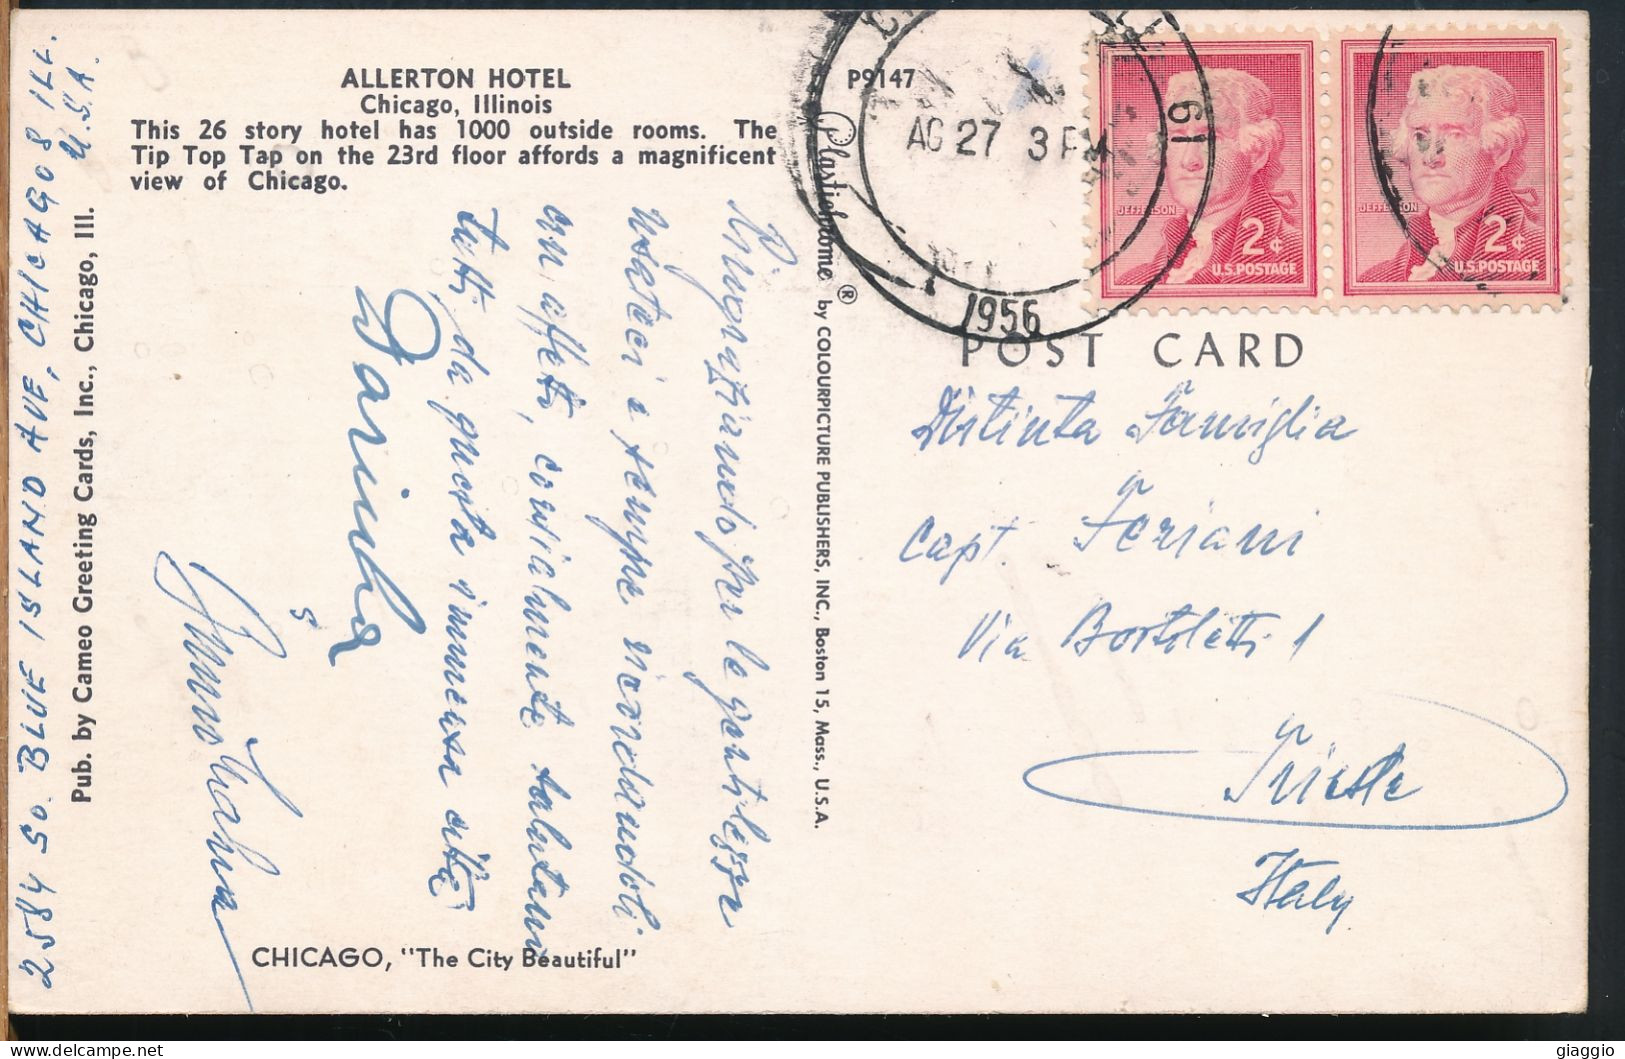 ALLERTON HOTEL
Chicago, Illinois
This 26 story hotel has 1000 outside rooms. The
Tip Top Tap on the 23rd floor affords a magnificent
view of Chicago.
Ringraziando per le gentilezze
usateci e sempre ricordandoli
con affetto, cordialmente salutano
tutti da questa immensa città
Darinka
CHICAGO, "The City Beautiful"
2584 SO. BLUE ISLAND AVE, CHICAGO 8 ILL.
U.S.A.
Pub. by Cameo Greeting Cards, Inc., Chicago, Ill.
P9147
Plastichrome ® by COLOURPICTURE PUBLISHERS, INC., Boston 15, Mass., U.S.A.
AG 27 3 PM
1956
61
JEFFERSON
2¢
U.S. POSTAGE
JEFFERSON
2¢
U.S. POSTAGE
POST CARD
Distinta Famiglia
Capt. Feriani
Via Bortoletti 1
Trieste
Italy
giaggio